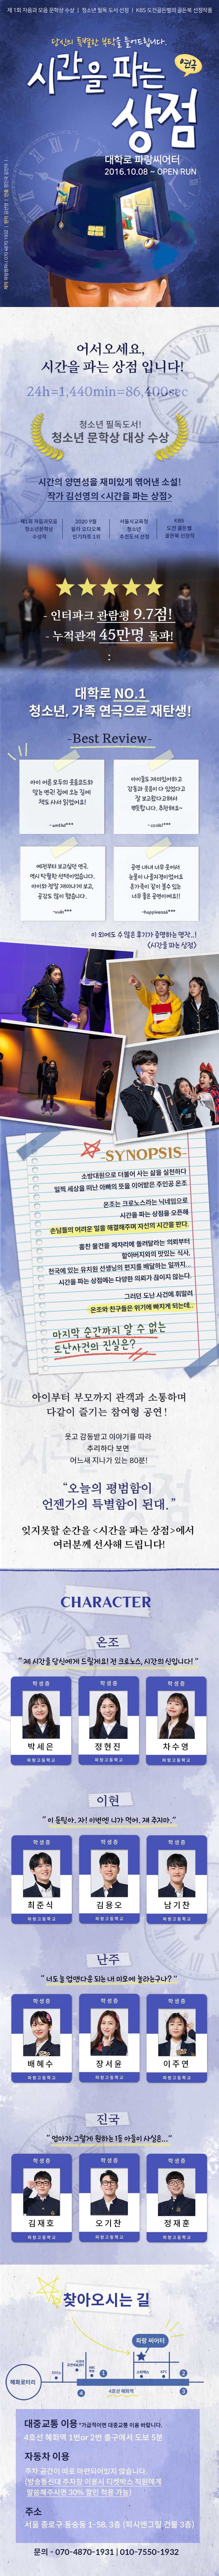 제 1회 자음과 모음 문학상 수상 | 청소년 필독 도서 선정 | KBS 도전골든벨의 골든북 선정작품
당신의 특별한 부탁을 들어드립니다.
연극
시간을 파는
상점
대학로 파랑씨어터
2016.10.08 ~ OPEN RUN
어서오세요,
시간을 파는 상점 입니다!
24h=1,440min=86,400sec
청소년 필독도서!
청소년 문학상 대상 수상
시간의 양면성을 재미있게 엮어낸 소설!
작가 김선영의 <시간을 파는 상점>
제1회 자음과모음
청소년문학상
수상작
2020 9월
윌라 오디오북
인기차트 1위
서울시교육청
청소년
추천도서 선정
KBS
도전 골든벨
골든북 선정작
- 인터파크 관람평 9.7점!
- 누적관객 45만명 돌파!
대학로 NO.1
청소년, 가족 연극으로 재탄생!
-Best Review-
아이 어른 모두의 웃음코드와
맞는 연극! 집에 오는 길에
책도 사서 읽었어요!
아이들도 재미있어하고
감동과 웃음이 다 있었다고
잘 보고왔다고해서
뿌듯합니다. 추천해요~
예전부터 보고싶던 연극,
역시 탁월한 선택이었습니다.
아이와 정말 재미나게 보고,
공감도 많이 했습니다.
공연 내내 너무 웃어서
눈물이 나올지경이었어요
온가족이 같이 볼수 있는
너무 좋은 공연이에요!!
-happiness6***
이 외에도 수많은 후기가 증명하는 명작..!
<시간을 파는 상점>
-SYNOPSIS-
소방대원으로 더불어 사는 삶을 실천하다
일찍 세상을 떠난 아빠의 뜻을 이어받은 주인공 온조
온조는 크로노스라는 닉네임으로
시간을 파는 상점을 오픈해
손님들의 어려운 일을 해결해주며 자신의 시간을 판다.
훔친 물건을 제자리에 돌려달라는 의뢰부터
할아버지와의 맛있는 식사,
천국에 있는 유치원 선생님의 편지를 배달하는 일까지...
시간을 파는 상점에는 다양한 의뢰가 끊이지 않는다.
그러던 도난 사건에 휘말려
온조와 친구들은 위기에 빠지게 되는데..
마지막 순간까지 알 수 없는
도난사건의 진실은?
아이부터 부모까지 관객과 소통하며
다같이 즐기는 참여형 공연!
웃고 감동받고 이야기를 따라
추리하다 보면
어느새 지나가 있는 80분!
“오늘의 평범함이
언젠가의 특별함이 된대.”
잊지못할 순간을 <시간을 파는 상점>에서
여러분께 선사해 드립니다!
CHARACTER
온조
“제 시간을 당신에게 드릴게요! 전 크로노스, 시간의 신입니다!”
학생증 학생증 학생증
박세은 정현진 차수영
파랑고등학교 파랑고등학교 파랑고등학교
이현
학생증 학생증 학생증
최준식 김용오 남기찬
파랑고등학교 파랑고등학교 파랑고등학교
난주
학생증 학생증 학생증
배혜수 장서윤 이주연
파랑고등학교 파랑고등학교 파랑고등학교
진국
“엄마가 그렇게 원하는 1등 아들이 사실은...”
학생증 학생증 학생증
김재호 오기찬 정재훈
파랑고등학교 파랑고등학교 파랑고등학교
찾아오시는 길
파랑 씨어터
혜화로터리
스타벅스
KFC
1
2
4
3
4호선 혜화역
대중교통 이용 *가급적이면 대중교통 이용 바랍니다.
4호선 혜화역 1번or 2번 출구에서 도보 5분
자동차 이용
주차 공간이 따로 마련되어있지 않습니다.
(방송통신대 주차장 이용시 티켓박스 직원에게
말씀해주시면 30% 할인 적용 가능)
주소
서울 종로구 동숭동 1-58, 3층 (피시앤그릴 건물 3층)
문의 - 070-4870-1931 | 010-7550-1932